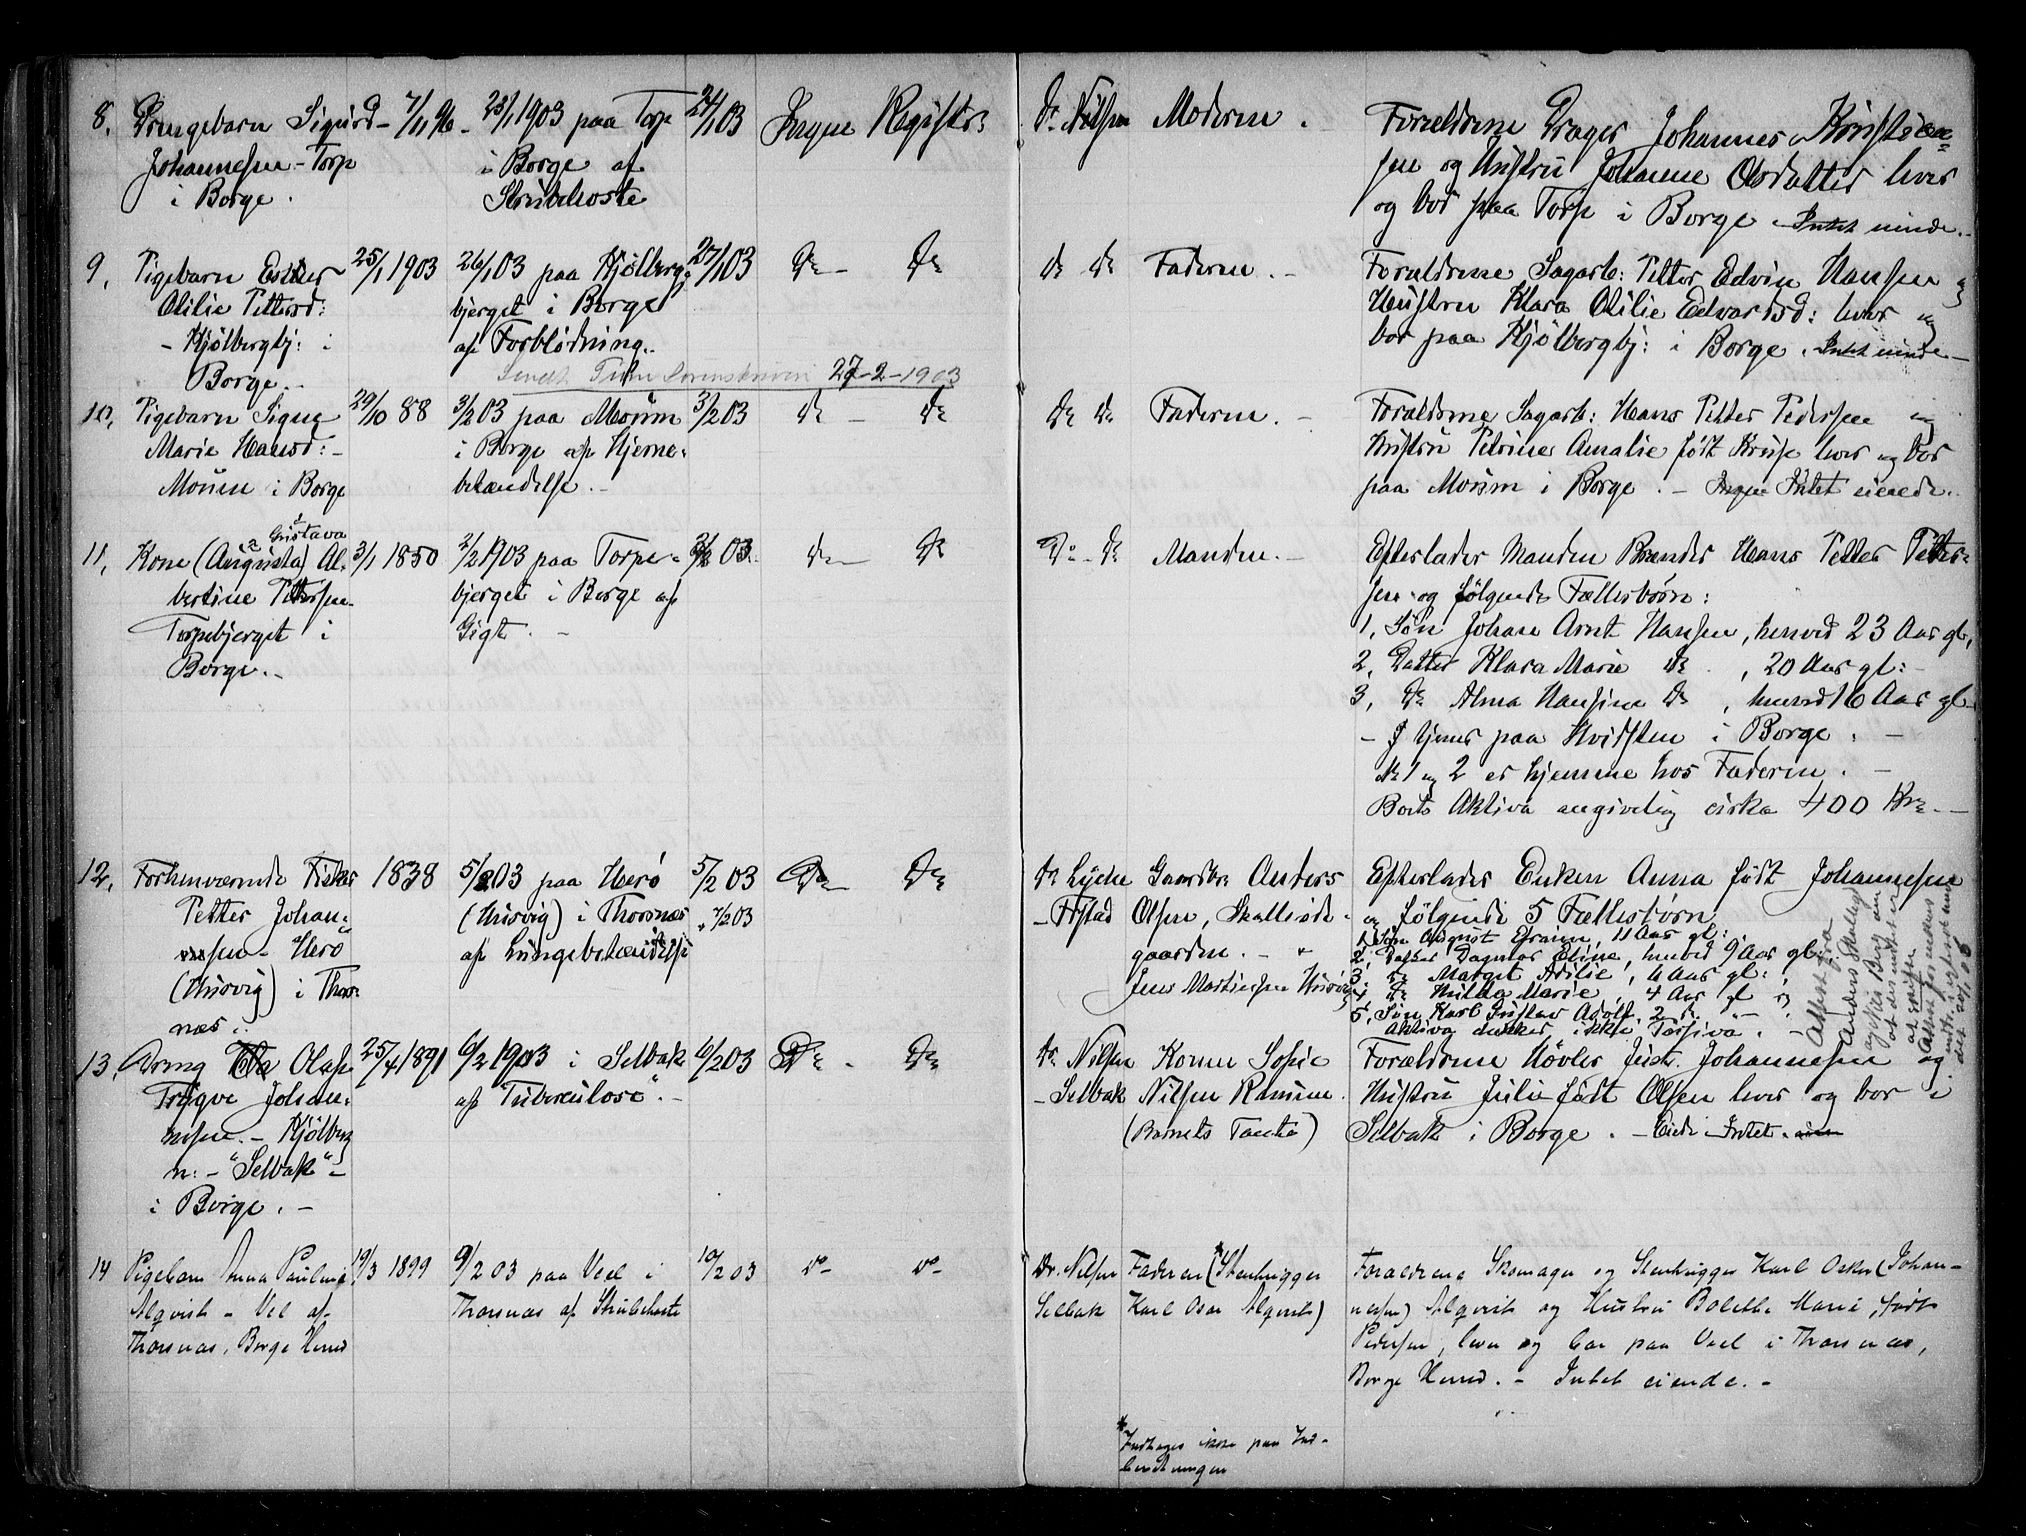 8. Drengebarn Sigurd
Johannessen - Torp
i Borge.
7/11 96
23/1 1903 paa Torp
i Borge af
Strubehoste
24/1 03
Ingen
Registr:
Dr. Nilsen
Moderen.
Forældrene Drager Johannes Kristian=
sen og Hustru Johanne Olsdatter lever
og bor paa Torp i Borge. Intet eiende.
9. Pigebarn Ester
Otilie Pettersd:
- Kjølbergbj: i
Borge.-
25/1 1903
26/1 03 paa Kjølberg-
bjerget i Borge
af Forblødning.
27/1 03
Do -
Do
Do Do
Faderen. -
Forældrene Sagarb: Petter Edvin Hansen og
Hustru Klara Otilie Edvardsd: lever og
bor paa Kjølbergbj: i Borge. Intet eiende -
Sendt Sorenskriveri 27-2-1903
10. Pigebarn Signe
Marie Hansd: -
Moum i Borge
29/10 88
3/2 03 paa Moum
i Borge af Hjerne-
betændelse. -
3/2 03
Do -
Do
Do Do
Faderen. -
Forældrene Sagarb: Hans Petter Pedersen og
Hustru Petrine Amalie født Kruse lever og bor
paa Moum i Borge. - Intet eiende.
11. Kone (Augusta) Al-
Gustava
bertine Pettersen
Torpebjerget i
Borge. -
3/1 1850
2/2 1903 paa Torpe-
bjerget i Borge af
Gigt. -
3/2 03.
Do -
Do
Do - Do
Manden. -
Efterlader Manden Brænder Hans Petter Petter-
sen og følgende Fællesbørn:
1, Søn Johan Arnt Hansen, henved 23 Aar gl,
2, Datter Klara Marie Do , 20 Aar gl: -
3, Do Alma Hansine Do , henved 16 Aar gl
- tjener paa Hvidsten i Borge. -
No 1 og 2 er hjemme hos Faderen. -
Boets Aktiva angivelig cirka 400 Kr. -
12. Forhenværende Fisker
Petter Johan-
nesen - Herø
(Husvig) i Thors-
næs.
1838
5/2 03 paa Herø
(Husvig) i Thorsnæs
af Lungebetændelse
5/2 03
7/2 03
Do
Do
Dr Lyche
- Frstad
Gaardbr. Anders
Olsen, Skallerød-
gaarden. -
Jens Martinsen Husvig
Efterlader Enken Anna født Johannesen
og følgende 5 Fællesbørn
1, Søn August Efraim, 11 Aar gl:
2, Datter Dagmar Eline, henved 9 Aar gl
3, Do Margit Adilie, 6 Aar gl:
4, Do Hilda Marie, 4 Aar gl og
5, Søn Karl Gustav Adolf, 2
Aktiva dækker ikke Passiva. -
Attest fra
Anders
13. Dreng Olaf
Trygve Johan-
nesen. - Kjølberg
n: - "Selbak" -
i Borge. -
25/4 1891
6/2 1903 i Selbak
af "Tuberculose". -
6/2 03
Do -
Do
Dr. Nilsen
- Selbak
Konen Sofie
Nilsen Remmen.
(Barnets Tante)
Forældrene Høvler Just. Johannesen og
Hustru Julie født Olsen lever og bor i
Selbak i Borge. - Eiede Intet.
14 Pigebarn Anna Pauline
Alqvist - Vel af
Thorsnæs, Borge Herred
19/3 1899
9/2 03 paa Vel i
Thorsnæs af Strubehoste
10/2 03
do -
do -
Dr. Nilsen
Selbak
Faderen *(Stenhugger
Karl Oscar Alqvist)
Forældrene Skomager og Stenhugger Karl Oskar (Johan-
nesen) Alqvist og Hustru Bolette Marie, født
Pedersen, lever og bor paa Vel i Thorsnæs,
Borge Herred. - Intet eiende. -
* Indtages ikke paa Ind-
beretningen